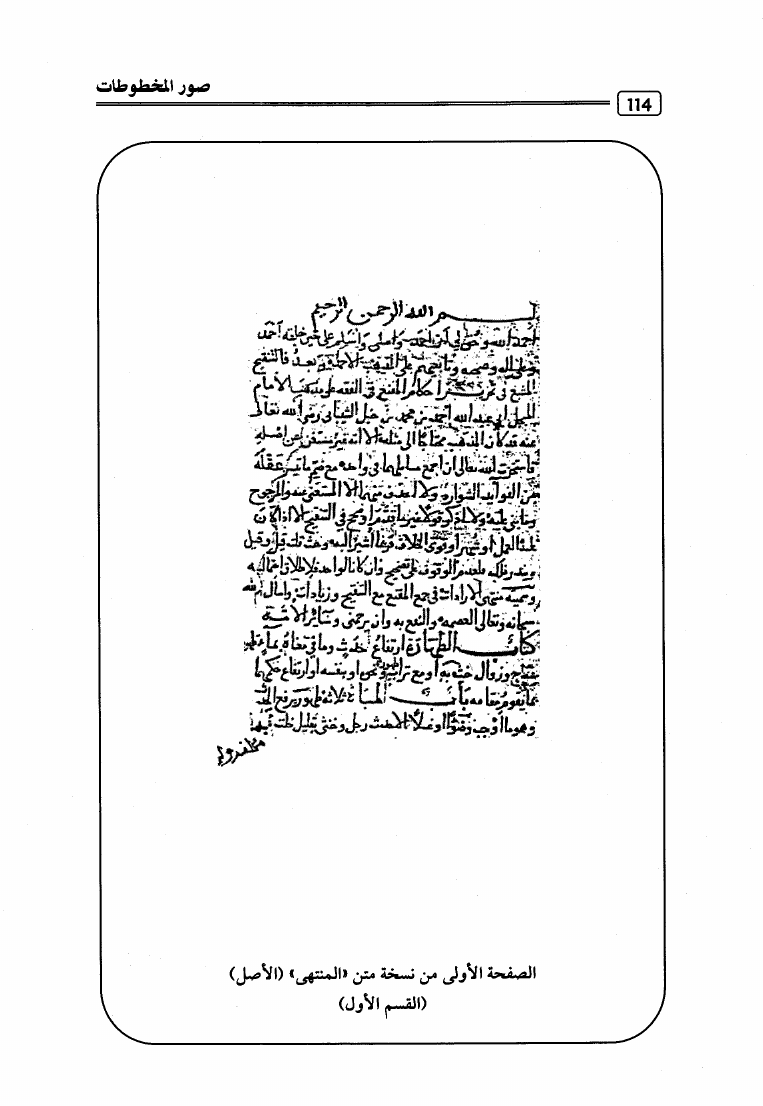 صور المخطوطات
114
بسم الله الرحمن الرحيم
أحمد الله وحق لي أن أحمد وأصلي وأسلم على خير خلقه أحمد
وعلى آله وصحبه وتابعيهم على المذهب الأحمد وبعد فالتنقيح
المشبع في تحرير أحكام المقنع في الفقه على مذهب الإمام
المبجل أبي عبد الله أحمد بن محمد بن حنبل الشيباني رضي الله تعالى
عنه قد كان المذهب محتاجا إلى مثله إلا أنه غير مستغن عن أصله
فاستخرت الله تعالى أن أجمع مسائلهما في واحد مع ضم ما تيسر عقله
من الفوائد الشوارد ولا أحذف منهما إلا المستغنى عنه والمرجوح
وما بني عليه ولا أذكر قولا غير ما قدم أو صحح في التنقيح إلا إذا كان
عليه العمل أو شهر أو قوي الخلاف فربما أشير إليه وحيث قلت قيل وقيل
ويندر ذلك فلعدم الوقوف على تصحيح وإن كانا لواحد فلإطلاق احتماليه
وسميته منتهى الإرادات في جمع المقنع مع التنقيح وزيادات وأسأل الله
سبحانه وتعالى العصمة والنفع به وأن يرحمني وسائر الأمة
كتاب الطهارة ارتفاع حدث وما في معناه بماء طهور
مباح وزوال خبث به أو مع تراب طهور ونحوه أو بنفسه أو ارتفاع حكمهما
بما يقوم مقامه باب المياه ثلاثة طهور يرفع الحدث
وهو ما أوجب وضوءا أو غسلا إلا حدث رجل وخنثى بقليل خلت به
الصفحة الأولى من نسخة متن «المنتهى» (الأصل)
(القسم الأول)